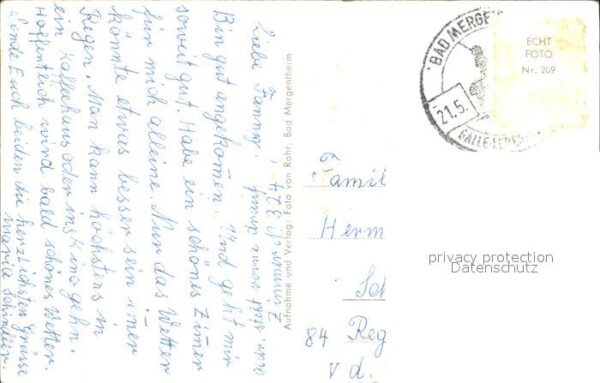 Liebe Fanny.
Bin gut angekommen. Und geht mir
soweit gut. Habe ein schönes Zimer
für mich alleine. Nur das Wetter
könnte etwas besser sein imer
Regen. Man kann höchstens in
ein Kaffeehaus oder ins Kino gehn.
Hoffentlich wird bald schönes Wetter.
Sende Euch beiden die herzlichsten Grüsse
Maria Schindler.
Aufnahme und Verlag: Foto von Rohr, Bad Mergentheim
BAD MERGE
21.5.
ECHT
FOTO
Nr. 209
Famil
Herm
Sch
84 Reg
v d.
privacy protection
Datenschutz